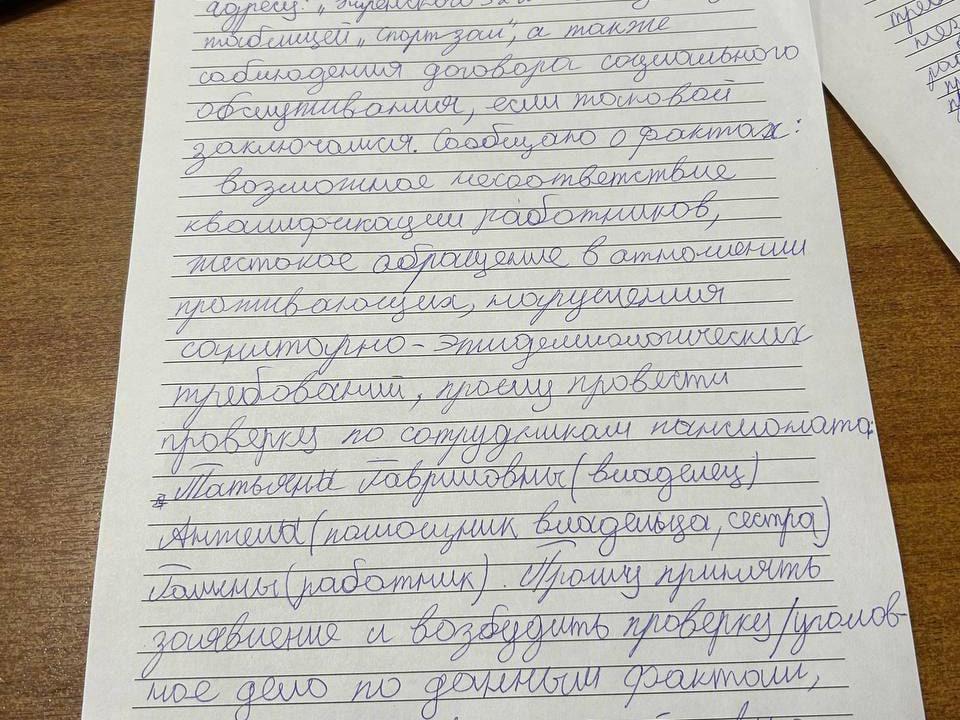 адресу:
таблицей "спортзал", а также
соблюдения договора социального
обслуживания, если таковой
заключался. Сообщаю о фактах:
возможное несоответствие
квалификации работников,
жестокое обращение в отношении
проживающих, нарушения
санитарно-эпидемиологических
требований, прошу провести
проверку по сотрудникам пансионата:
Татьяны Гавриловны (владелец)
Ангелы (помощник владельца, сестра)
Галины (работник). Прошу принять
заявление и возбудить проверку/уголов-
ное дело по данным фактам,